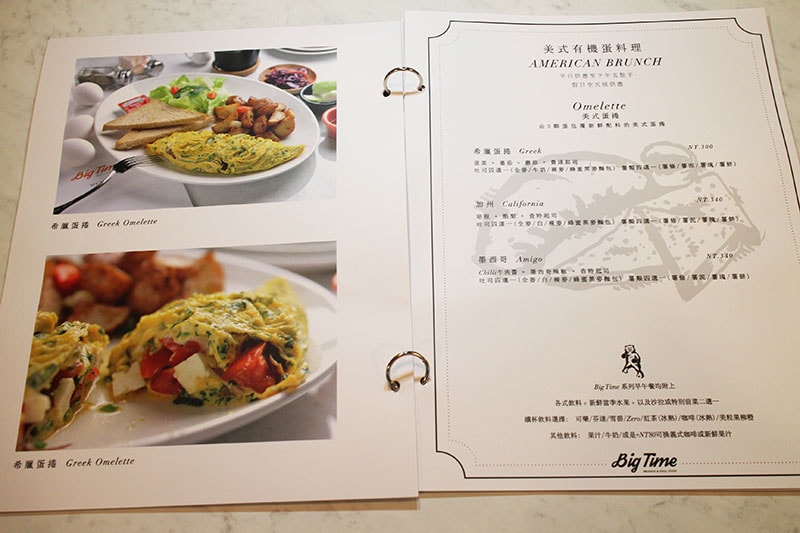 Big Time
希臘蛋捲 Greek Omelette
希臘蛋捲 Greek Omelette
美式有機蛋料理
AMERICAN BRUNCH
平日供應至下午五點半
假日全天候供應
Omelette
美式蛋捲
由3顆蛋包覆新鮮配料的美式蛋捲
希臘蛋捲 Greek NT.300
菠菜、番茄、蘑菇、費達起司
吐司四選一(全麥/牛奶/裸麥/蜂蜜黑麥麵包) 薯類四選一(薯條/薯泥/薯塊/薯餅)
加州 California NT.340
培根、酪梨、查特起司
吐司四選一(全麥/白/裸麥/蜂蜜黑麥麵包) 薯類四選一(薯條/薯泥/薯塊/薯餅)
墨西哥 Amigo NT.340
Chilli牛肉醬、墨西哥辣椒、查特起司
吐司四選一(全麥/白/裸麥/蜂蜜黑麥麵包) 薯類四選一(薯條/薯泥/薯塊/薯餅)
Big Time 系列早午餐均附上
各式飲料。新鮮當季水果。以及沙拉或特別前菜二選一
續杯飲料選擇： 可樂/芬達/雪碧/Zero/紅茶(冰熱)/咖啡(冰熱)/美粒果柳橙
其他飲料： 果汁/牛奶/或是+NT80可換義式咖啡或新鮮果汁
Big Time
BRUNCH & SOUL FOOD